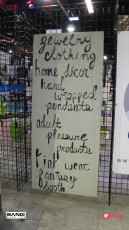 jewelry
clothing
home décor
hand
wrapped
pendants
adult
pleasure
products
kink wear
fantasy
booth
BANG!